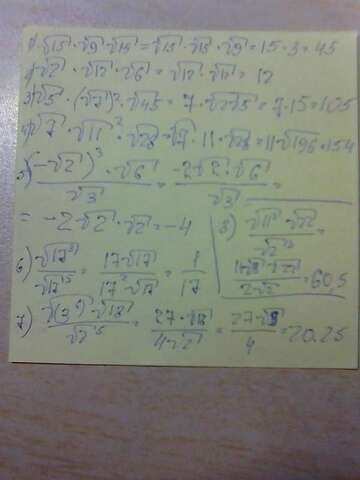 1) √15 · √9 · √15 = √15 · √15 · √9 = 15 · 3 = 45
2) √2 · √12 · √6 = √12 · √12 = 12
3) √5 · (√7)² · √45 = 7 · √225 = 7 · 15 = 105
4) √7 · √11² · √28 = √7 · 11 · √28 = 11 √196 = 154
5) (-√2)³ · √6 / √3 = -2√2 · √6 / √3 =
= -2√2 · √2 = -4
6) √17³ / √17⁵ = 17√17 / 17²√17 = 1 / 17
7) √(3⁶) · √18 / √2⁵ = 27 · √18 / 4√2 = 27 · √9 / 4 = 20.25
8) √11³ · √22 / √2³ =
/ 2√2 = 60,5